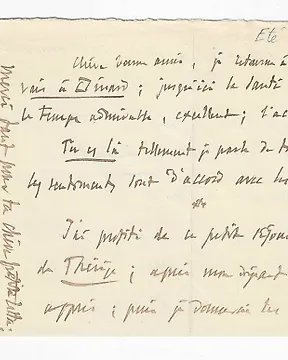 Eté
chère bonne amie, je retourne à
vais à Dinard ; jusqu'ici la santé
le temps admirable, excellent ; l'ac
Tu es là tellement je parle de t
les sentiments sont d'accord avec les
J'ai profité de ce petit séjour
de Thérèse ; après mon départ
appris ; puis je
Merci tant pour ta chère petite lettre,